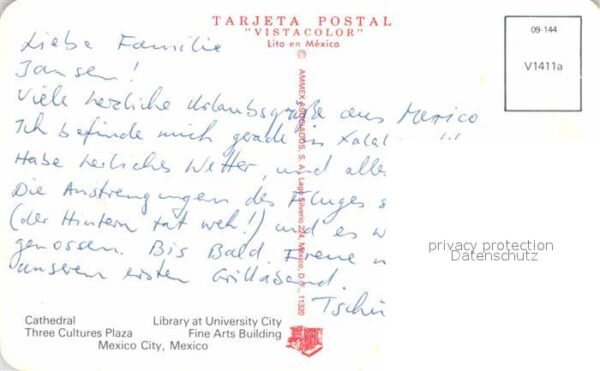 TARJETA POSTAL
"VISTACOLOR"
Lito en México
09-144
V1411a
© AMMEX ASOCIADOS, S. A. Lago Silverio 224, México, D. F., 11320
Liebe Familie
Jansen!
Viele herzliche Urlaubsgrüße aus Mexico
Ich befinde mich gerade in Xalal
Habe herrliches Wetter, und alle
Die Anstrengungen des Fluges s
(der Hintern tat weh!) und es w
genossen. Bis Bald. Freue m
unserem ersten Grillabend.
Tschü
privacy protection
Datenschutz
Cathedral
Three Cultures Plaza
Library at University City
Fine Arts Building
Mexico City, Mexico